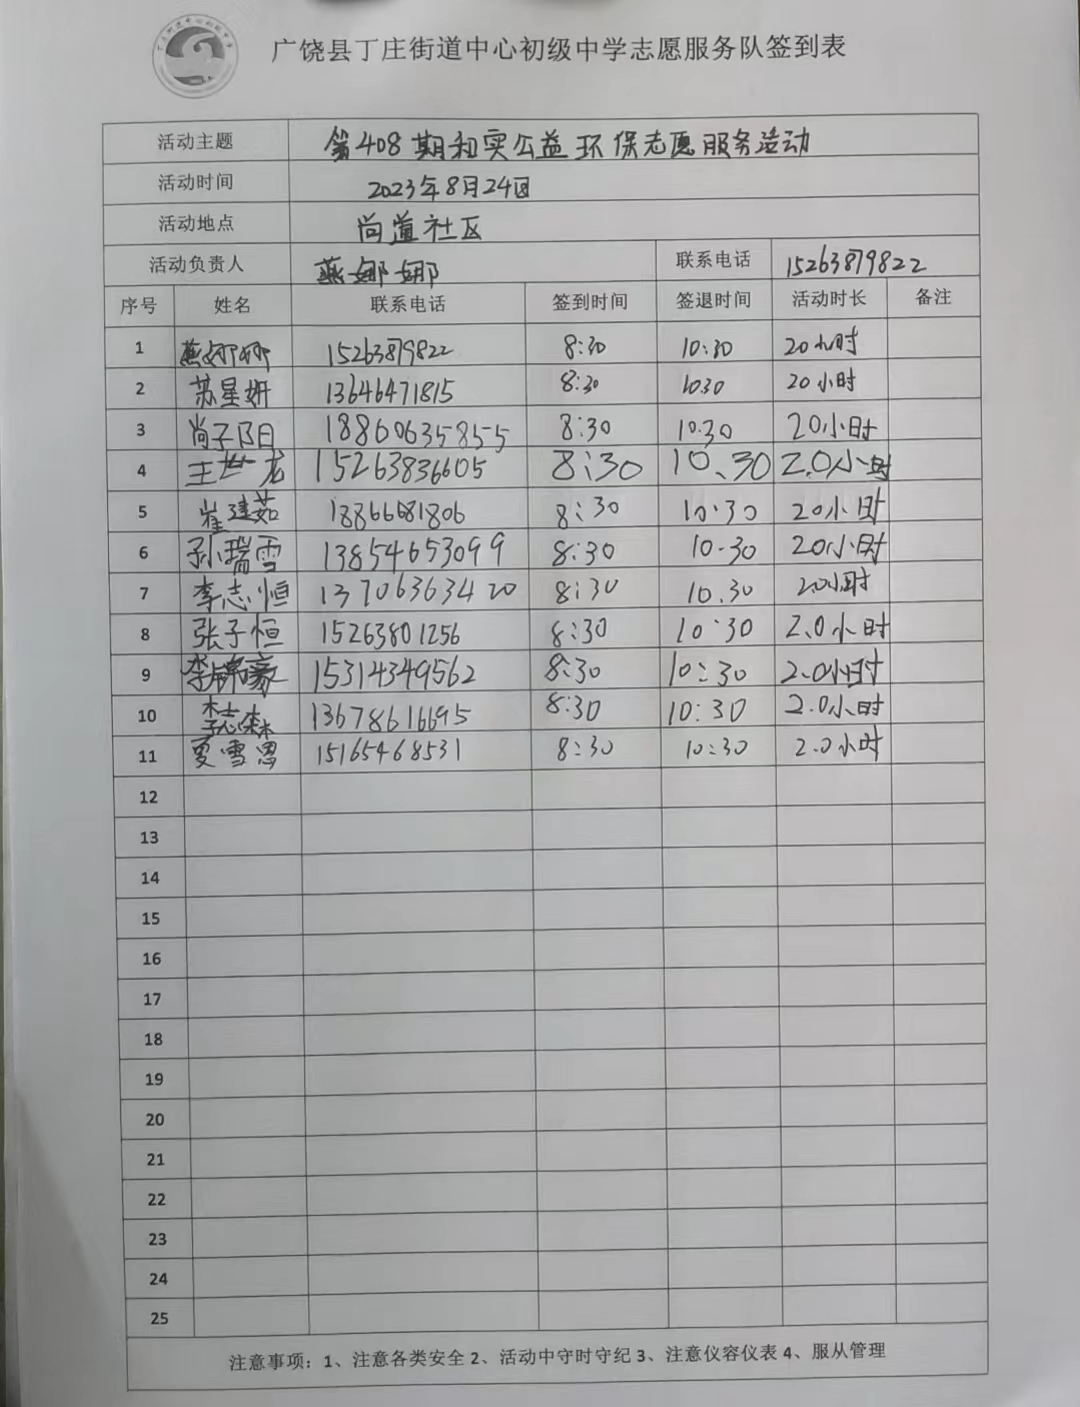 广饶县丁庄街道中心初级中学志愿服务队签到表
活动主题 第408期和实公益环保志愿服务活动
活动时间 2023年8月24日
活动地点 尚道社区
活动负责人 燕娜娜 联系电话 15263879822
序号 姓名 联系电话 签到时间 签退时间 活动时长 备注
1 燕娜娜 15263879822 8:30 10:30 20小时
2 苏星妍 13646471815 8:30 1030 20小时
3 尚子阳 18860635855 8:30 10:30 20小时
4 王世龙 15263836605 8:30 10.30 2.0小时
5 崔建茹 18866681806 8:30 10:30 20小时
6 孙瑞雪 13854653099 8:30 10.30 20小时
7 李志恒 13706363420 8:30 10.30 20小时
8 张子恒 15263801256 8:30 10:30 2.0小时
9 李锦豪 15314349562 8:30 10:30 2.0小时
10 李志森 13678616695 8:30 10:30 2.0小时
11 夏雪恩 15165468531 8:30 10:30 2.0小时
12
13
14
15
16
17
18
19
20
21
22
23
24
25
注意事项：1、注意各类安全 2、活动中守时守纪 3、注意仪容仪表 4、服从管理